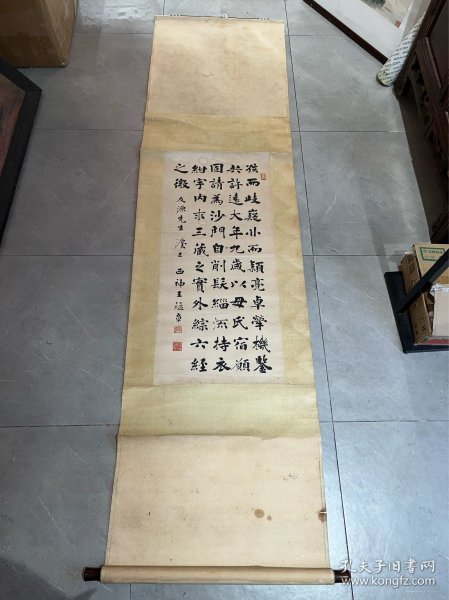 孩而歧嶷小而穎亮卓犖機鑒
於許遠大年九歲以母氏宿願
固請為沙門自削髮緇流持衣
紺宇內求三藏之實外綜六經
之微 友源先生 屬正 西神王蘊章
孔夫子旧书网
www.kongfz.com